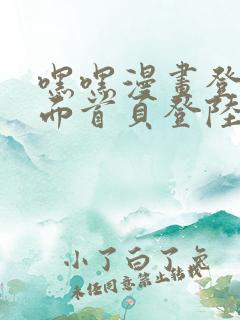 嘿嘿漫畫登
而首頁登陸
小了白了兔
未经同意禁止转载